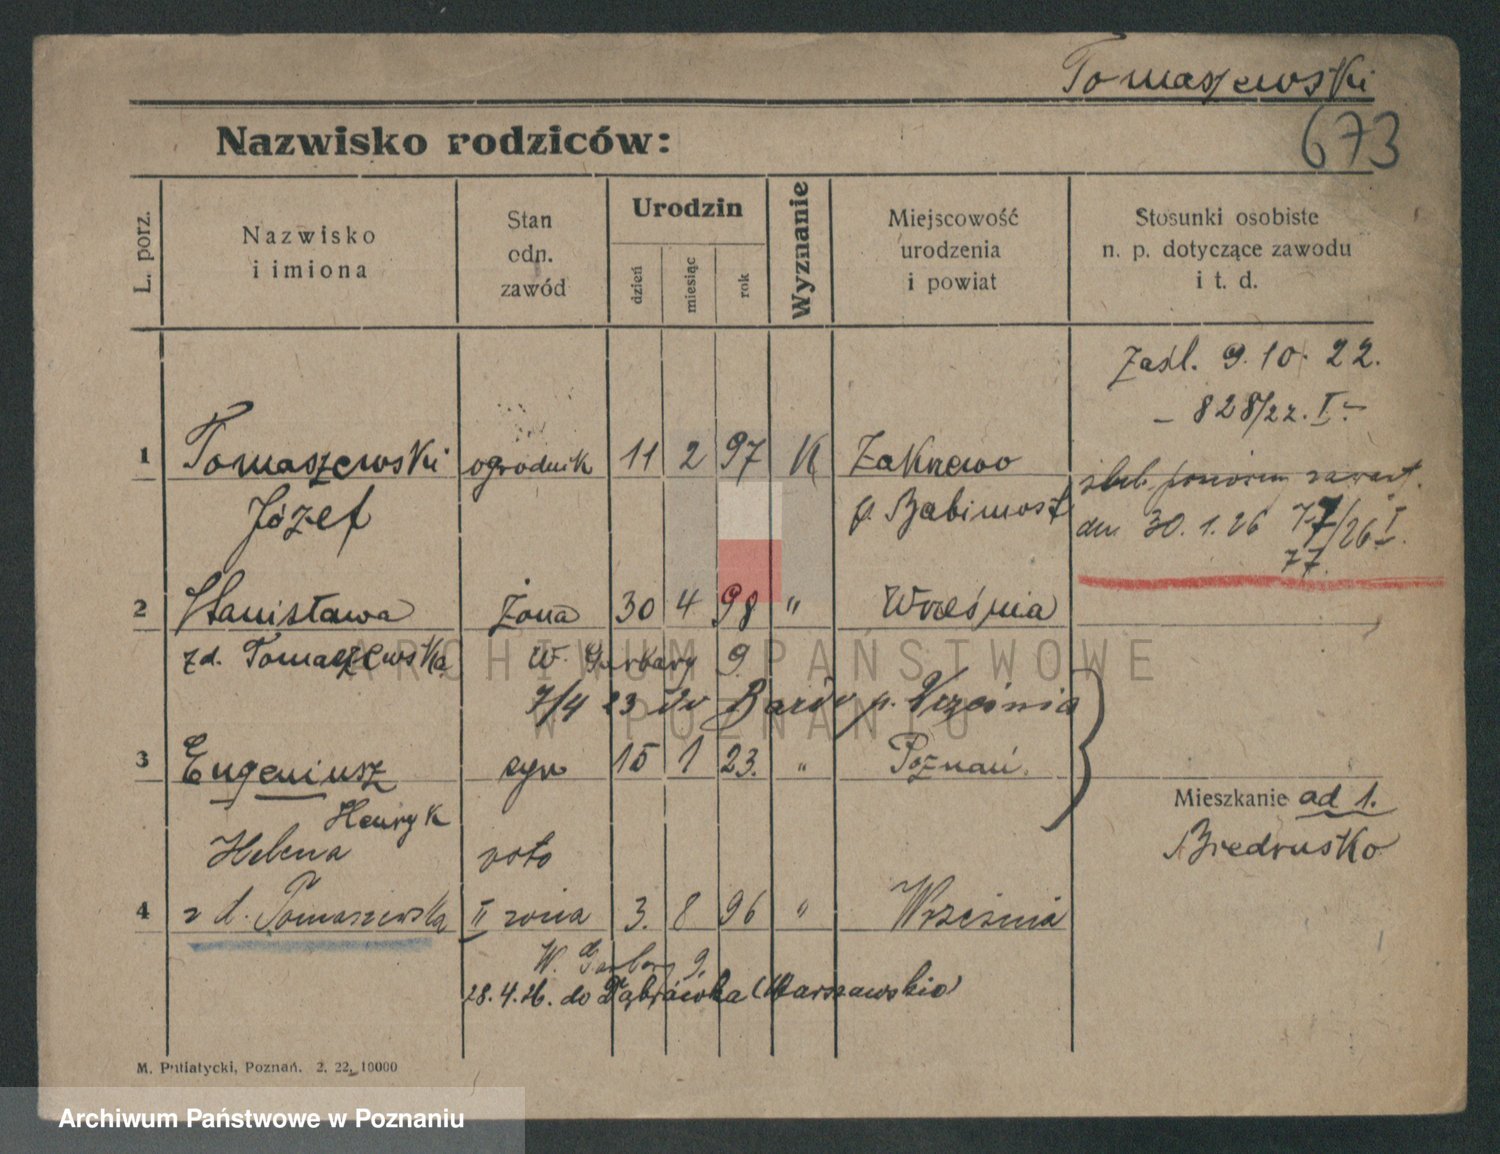 Tomaszewski
673
Nazwisko rodziców:
L. porz.
Nazwisko
i imiona
Stan
odn.
zawód
Urodzin
dzień
miesiąc
rok
Wyznanie
Miejscowość
urodzenia
i powiat
Stosunki osobiste
n. p. dotyczące zawodu
i t. d.
Zaśl. 9. 10. 22.
828/22. I
1 Tomaszewski ogrodnik 11 2 97 K Zaknewo
Józef p. Babimost
ślub zawart.
dn. 30.1.26 77/26 I.
77.
2 Stanisława żona 30 4 98 " Września
zd. Tomaszewska W. Garbary 9.
7/4 23 do Bardo p. Września
3 Eugeniusz syn 15 1 23. " Poznań.
Henryk
Mieszkanie ad 1.
Biedrusko
Helena
4 z d. Tomaszewska II żona 3. 8 96 " Września
W. Garbary 9.
28.4.26. do Dąbrówka (Warszawskie)
M. Putiatycki, Poznań. 2. 22. 10000
ARCHIWUM PAŃSTWOWE
W POZNANIU
Archiwum Państwowe w Poznaniu